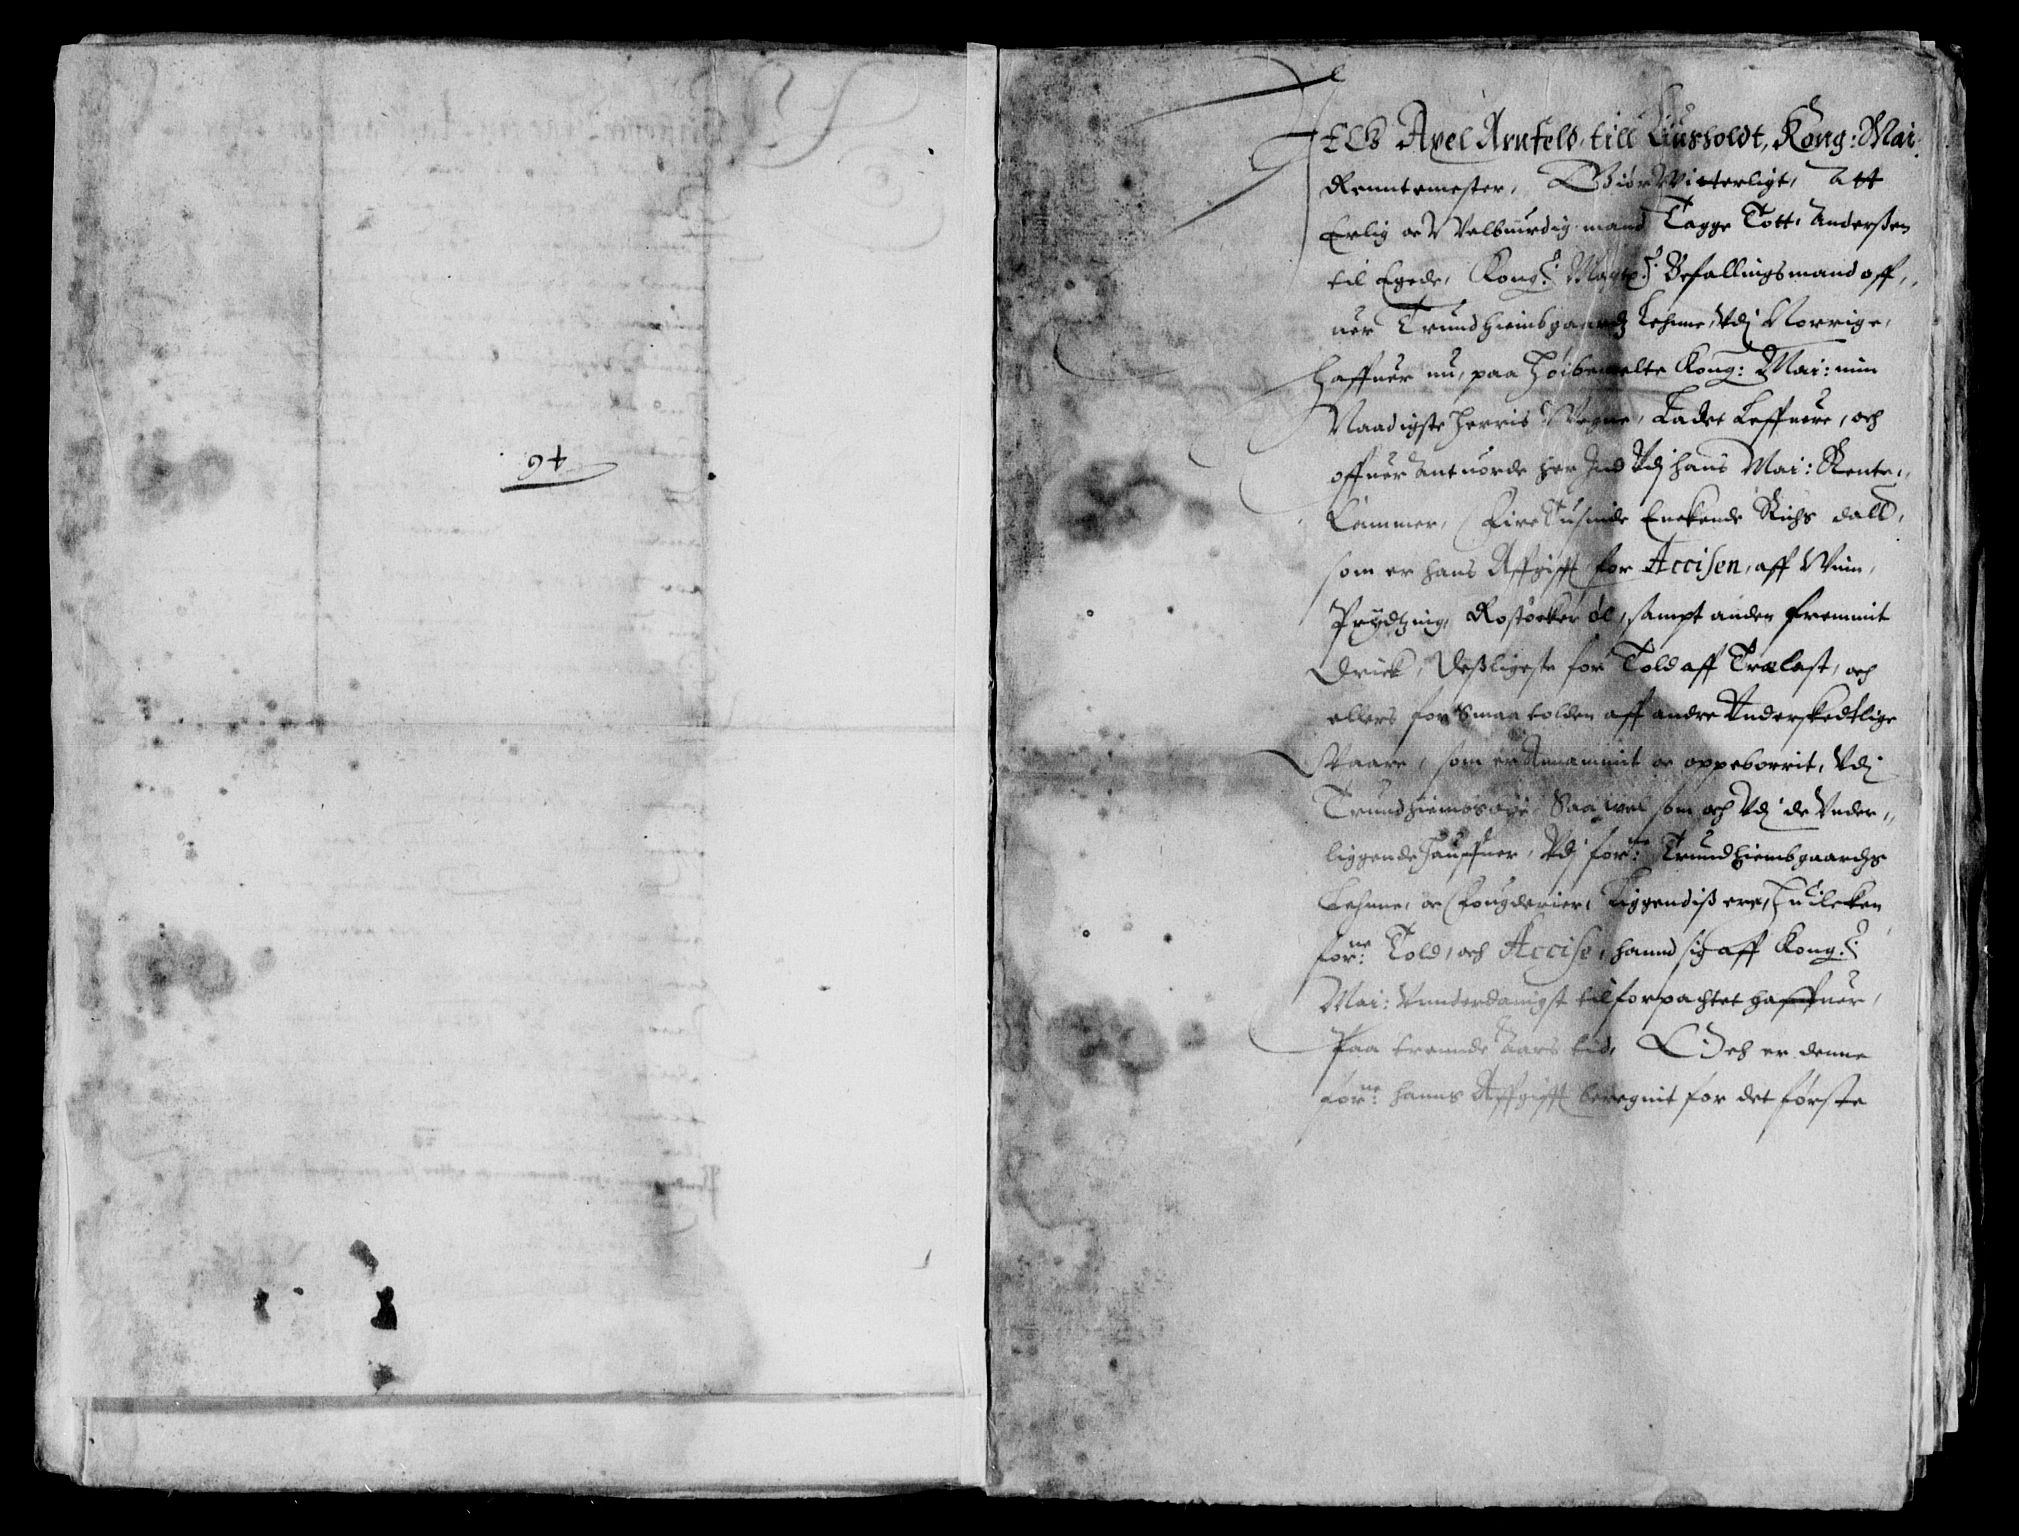 46
Jeg Axel Arnfeld, till Knusholdt, Kong: Mai:
Renntemester, Giør Witterligt, Att
Erlig oc Velbuurdig mand Tagge Tott Anderßen
til Egede, Kong: Maytz: Befallingsmand off,,
uer Trundhiembgaardz Lehnn, Vdj Norrige,
Haffuer nu, paa Høibemelte Kong: Mai: min
Naadigste Herris Wegne, Ladet Leffuere, och
offuer Antuorde her Ind Vdj hans Mai: Rente,,
Cammer, Fire Tusinde Enckende Richs dall,
som er hans Affgifft for Accisen, aff Wiin,
Prydtzing, Rostocker øl, sampt anden fremmit
Drick, Deßligeste for Told aff Trælast, och
ellers for Smaatolden aff andre Vnderskedtlige
Waare, som er Annammit oc oppeborrit, Vdj
Saa wel som och Vdj de Vnder,,
liggende Hauffner, Vdj for:ne Trundhiembgaardz
Lehnn, oc Fougderier, Liggendiß ere, Huilcken
for:ne Told, och Accise, hannd sig aff Kong:
Mai: Vnnderdanigst tilforpachtet haffuer,
Paa trennde Aars tid, Och er denne
for:ne hanns Affgifft beregnit for det første